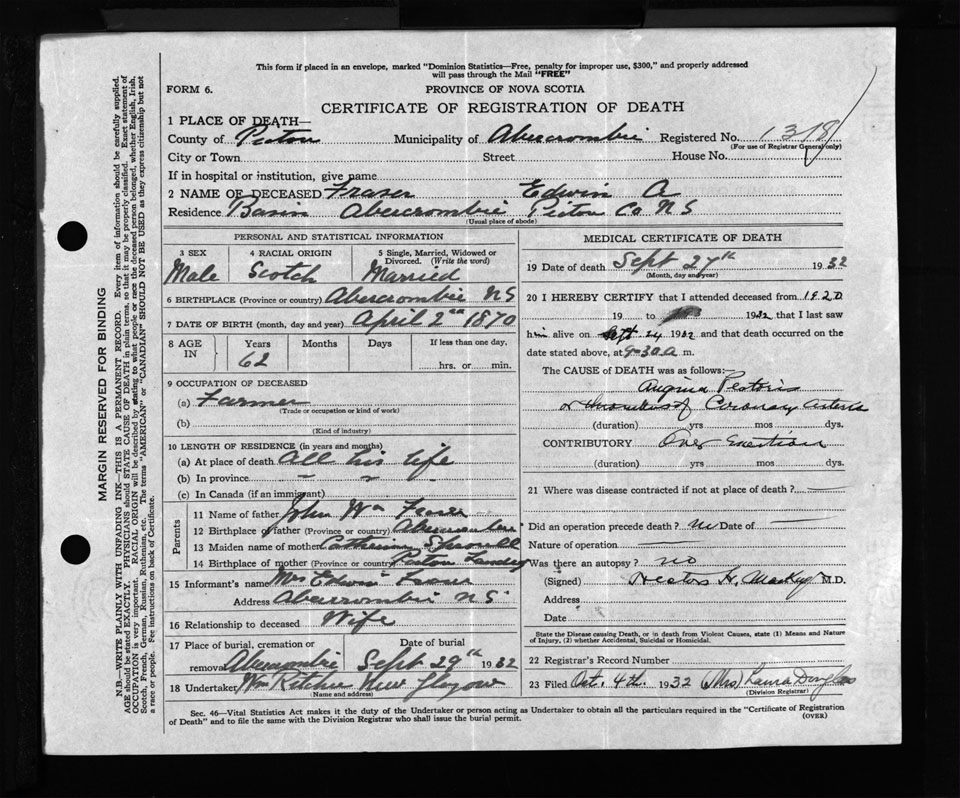 This form if placed in an envelope, marked "Dominion Statistics—Free, penalty for improper use, $300," and properly addressed
will pass through the Mail "FREE"
FORM 6.
PROVINCE OF NOVA SCOTIA
CERTIFICATE OF REGISTRATION OF DEATH
1 PLACE OF DEATH—
County of Pictou Municipality of Abercrombie Registered No. 1318
(For use of Registrar General only)
City or Town Street House No.
If in hospital or institution, give name
2 NAME OF DECEASED Fraser Edwin A
Residence Basin Abercrombie Pictou Co NS
(Usual place of abode)
PERSONAL AND STATISTICAL INFORMATION
3 SEX 4 RACIAL ORIGIN 5 Single, Married, Widowed or Divorced. (Write the word)
Male Scotch Married
6 BIRTHPLACE (Province or country) Abercrombie NS
7 DATE OF BIRTH (month, day and year) April 2nd 1870
8 AGE IN Years Months Days If less than one day,
62 hrs. or min.
9 OCCUPATION OF DECEASED
(a) Farmer
(Trade or occupation or kind of work)
(b)
(Kind of industry)
10 LENGTH OF RESIDENCE (in years and months)
(a) At place of death All his life
(b) In province " " "
(c) In Canada (if an immigrant)
Parents
11 Name of father John Wm Fraser
12 Birthplace of father (Province or country) Abercrombie
13 Maiden name of mother Catherine
14 Birthplace of mother (Province or country) Pictou Landing
15 Informant's name Mrs Edwin Fraser
Address Abercrombie NS
16 Relationship to deceased Wife
17 Place of burial, cremation or removal Date of burial
Abercrombie Sept 29th 1932
18 Undertaker Wm Ritchie New Glasgow
(Name and address)
MEDICAL CERTIFICATE OF DEATH
19 Date of death Sept 27th 1932
(Month, day and year)
20 I HEREBY CERTIFY that I attended deceased from 1920
19 to 1932 that I last saw
him alive on Sept 24 1932 and that death occurred on the
date stated above, at 9-30 a m.
The CAUSE of DEATH was as follows:—
Angina Pectoris
or thrombus of Coronary Arteries
(duration) yrs mos dys.
CONTRIBUTORY Over exertion
(duration) yrs mos dys.
21 Where was disease contracted if not at place of death?
Did an operation precede death? no Date of
Nature of operation
Was there an autopsy? no
(Signed) H. M.D.
Address
Date
State the Disease causing Death, or in death from Violent Causes, state (1) Means and Nature
of Injury, (2) whether Accidental, Suicidal or Homicidal.
22 Registrar's Record Number
23 Filed Oct. 4th 1932 (Mrs) Laura Douglas
(Division Registrar)
Sec. 46—Vital Statistics Act makes it the duty of the Undertaker or person acting as Undertaker to obtain all the particulars required in the "Certificate of Registration
of Death" and to file the same with the Division Registrar who shall issue the burial permit.
(OVER)
MARGIN RESERVED FOR BINDING
N.B.—WRITE PLAINLY WITH UNFADING INK—THIS IS A PERMANENT RECORD. Every item of information should be carefully supplied.
AGE should be stated EXACTLY. PHYSICIANS should STATE CAUSE OF DEATH in plain terms, so that it may be properly classified. Exact statement of
OCCUPATION is very important. RACIAL ORIGIN will be described by stating to what people or race the deceased person belonged, whether English, Irish,
Scotch, French, German, Russian, Ruthenian, etc. The terms "AMERICAN" or "CANADIAN" SHOULD NOT BE USED as they express citizenship but not
a race or people. See instructions on back of Certificate.